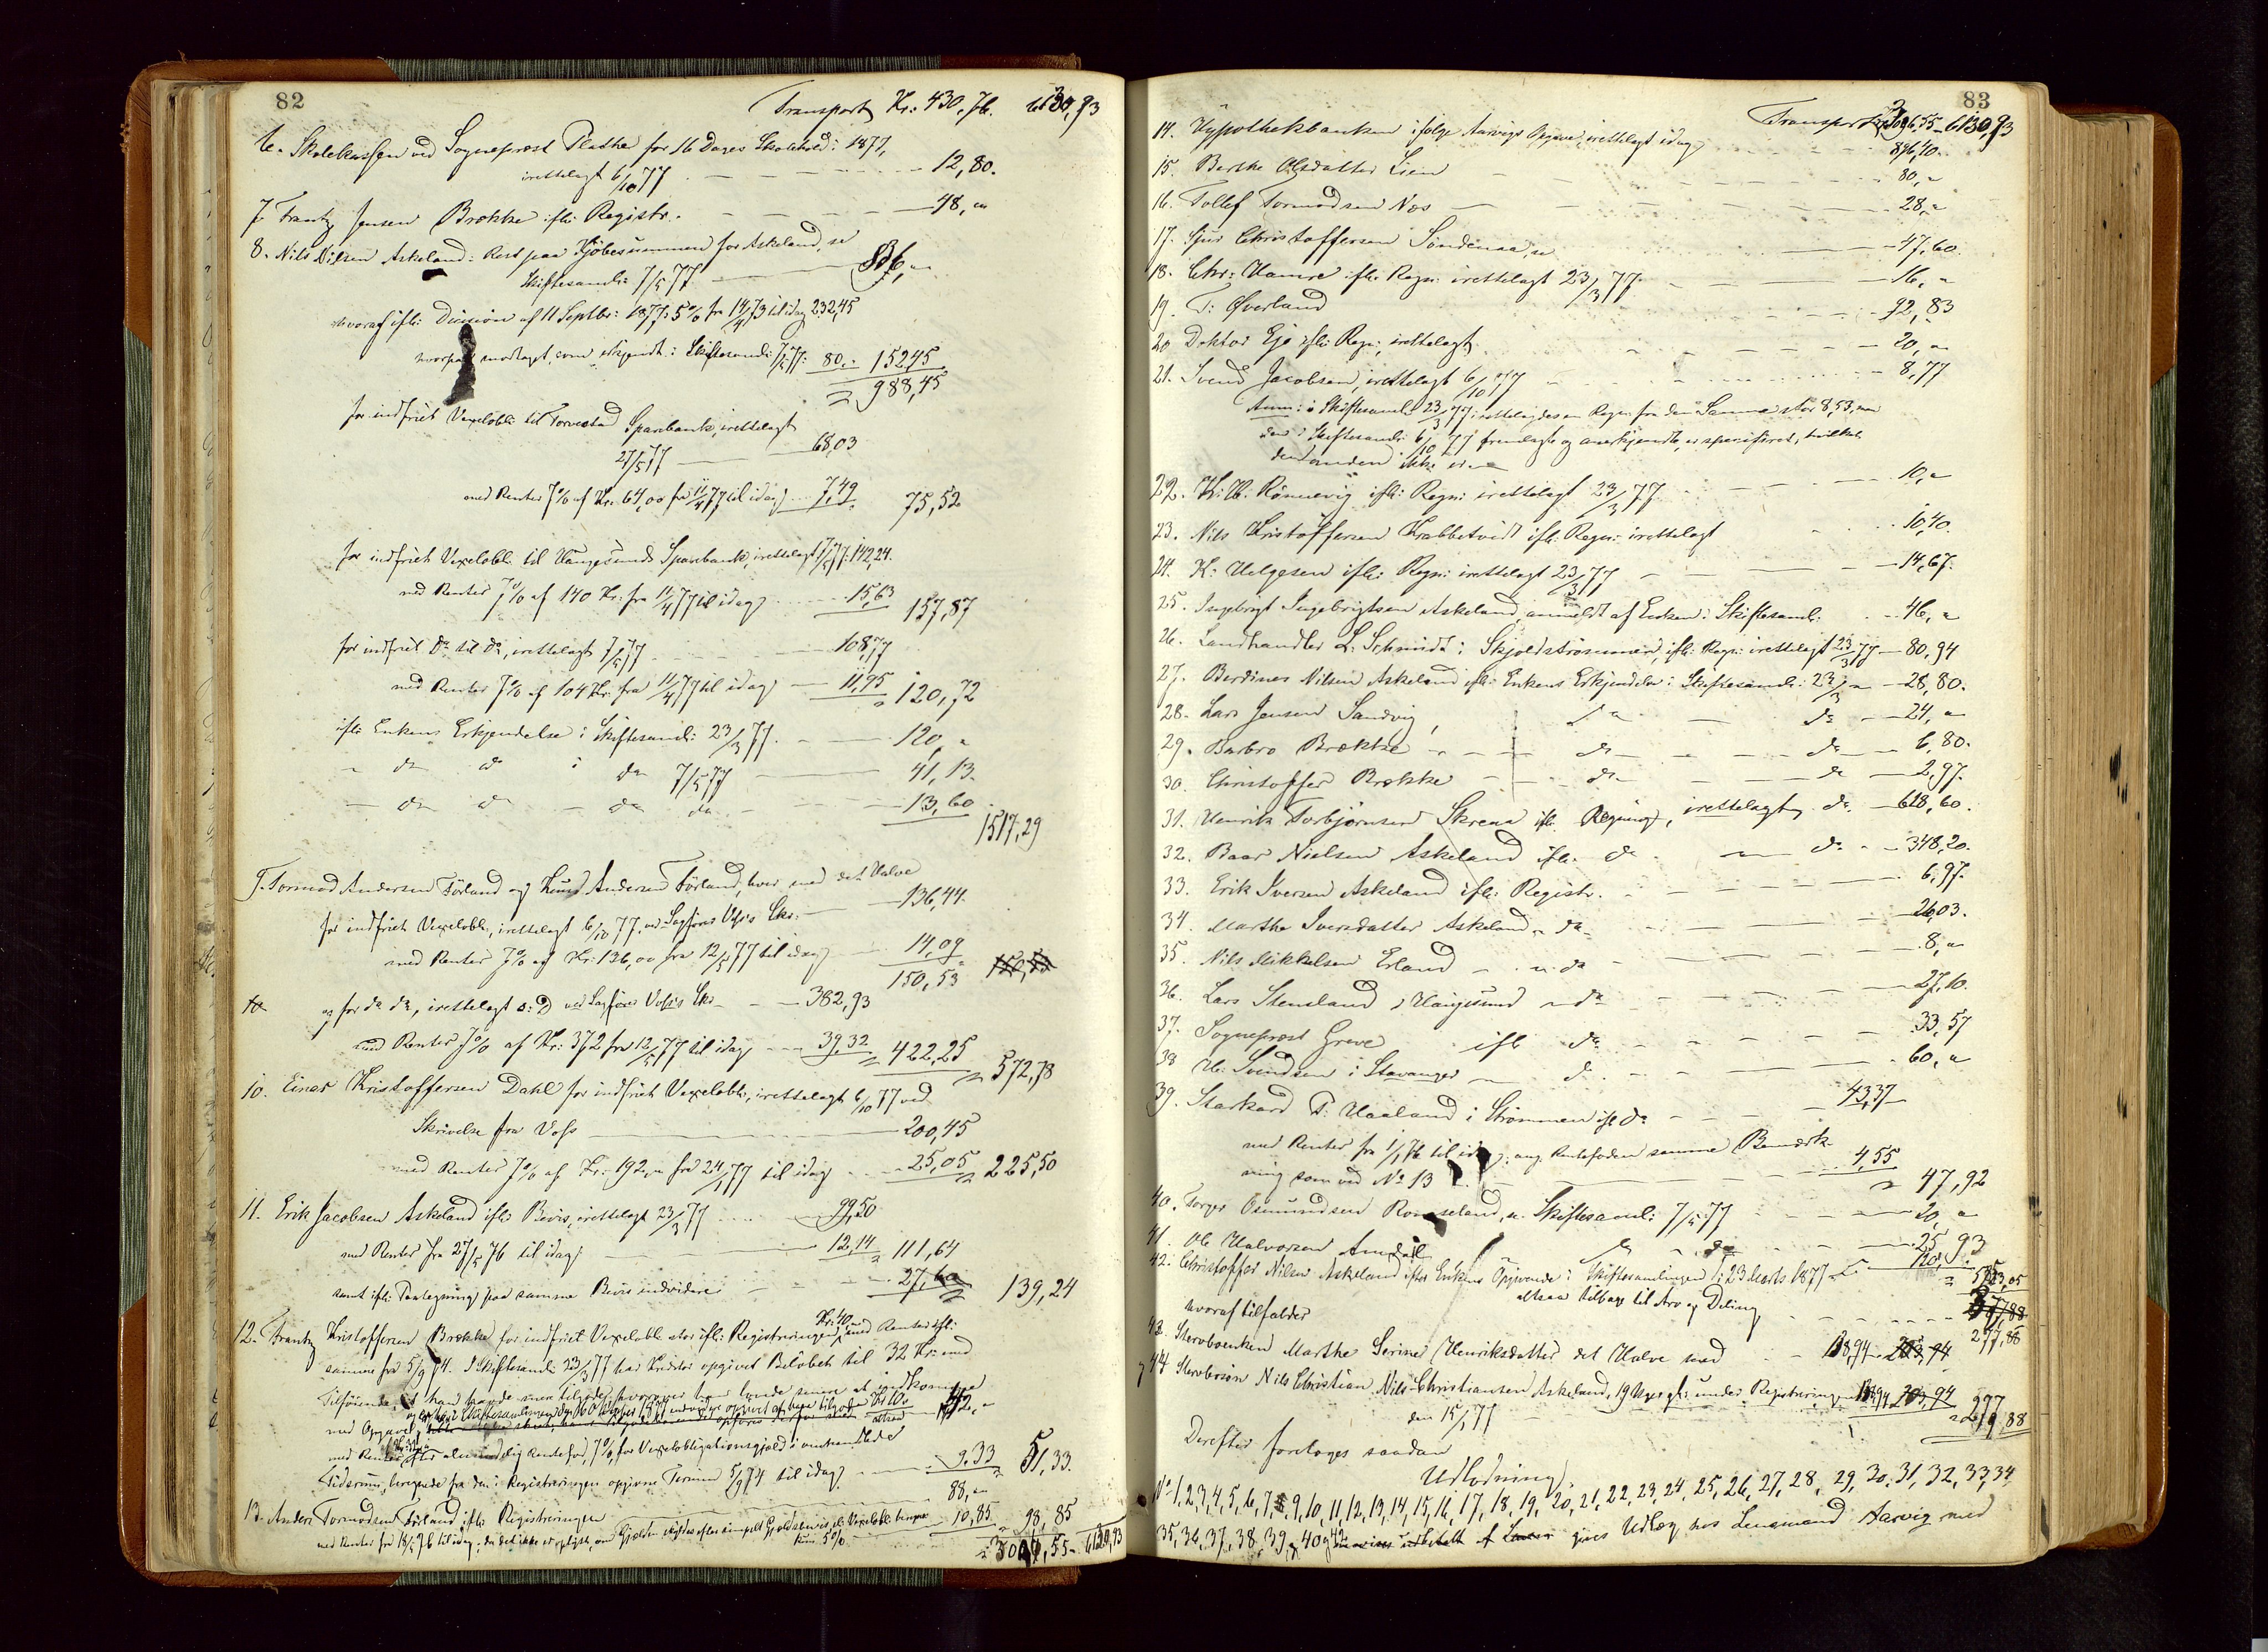 82
Transport Kr: 430,76. 6130,93
6. Skolekassen ved Sogneprest Plathe for 16 Dages Skolehold i 1877,
irettelagt 6/10 77 12,80.
7. Frantz Jensen Brække ifl: Registr. 48,"
8. Nils Nilsen Askeland: Rest paa Kjöbesummen for Askeland, se
Skiftesaml: 7/5 77 836,"
hvoraf ifl: Decision af 11 Septbr: 1877: 5% fra 14/4 73 til idag 232,45
hvorpaa modtaget, som erkjendt i Skiftesaml: 7/5 77: 80,- 152,45
988,45
for indfriet Vexelobl: til Torvestad Sparebank, irettelagt
27/5 77 68,03
med Renter 7% af Kr. 64,00 fra 11/4 77 til idag 7,49 75,52
for indfriet Vexelobl. til Haugesunds Sparebank, irettelagt 7/5 77: 142,24.
med Renter 7% af 140 Kr: fra 11/4 77 til idag 15,63 157,87
for indfriet do til do, irettelagt 7/5 77 108,77
med Renter 7% af 104 Kr. fra 11/4 77 til idag 11,95 120,72
ifl: Enkens Erkjendelse i Skiftesaml: 23/3 77. 120,"
" do do i do 7/5 77 41,13.
- do do - do do 13,60
1517,29
9. Tormod Andersen Förland og Knud Andersen Förland, hver med det Halve
for indfriet Vexelobl:, irettelagt 6/10 77, ved Sagförer Voss's Skr: 136,44.
med Renter 7% af Kr: 136,00 fra 12/5 77 til idag 14,09
150,53
og for do do, irettelagt s: D ved Sagförer Voss's Skr 382,93
med Renter 7% af Kr: 372 fra 12/5 77 til idag 39,32 422,25
572,78
10. Einar Kristoffersen Dahl for indfriet Vexelobl:, irettelagt 6/10 77 ved
Skrivelse fra Voss 200,45
med Renter 7% af Kr: 192," fra 24/1 77 til idag 25,05 225,50
11. Erik Jacobsen Askeland ifl: Bevis, irettelagt 23/3 77 99,50
med Renter fra 27/5 76 til idag: 12,14 111,64
samt ifl: Paategning paa samme Bevis endvidere 27,60 139,24
12. Frantz Kristoffersen Brække for indfriet Vexelobl: stor ifl: Registreringen Kr: 40, med Renter ifl:
samme fra 5/9 74. I Skiftesaml: 23/3 77 har Kreditor opgivet Belöbet til 32 Kr: med
Tilföiende, at han havde mere tilgode, hvorover han lovede senere at indkomme
med Opgave,
med Renter efter almindelig Rentefod, 7%, for Vexelobligationsgjæld i omhandlede
Tidsrum, beregnede fra den i Registreringen opgivne Termin 5/9 74 til idag 9,33 51,33.
13. Anders Tormodsen Förland, ifl: Registreringen 88,"
med Renter fra 18/5 76 til idag; da det ikke er oplyst, om Gjælden skyldes efter simpelt Gjældsbrev el. Vexelobl: beregnes 10,85 98,85
kun 5%
55 6130,93
83
Transport 55 6130,93
14. Hypothekbanken ifölge Aarvigs Opgave, irettelagt idag 896,40
15. Berthe Olsdatter Lien 80,"
16. Tollef Tormodsen Næs 28,"
17. Sjur Christoffersen Söndenaa, se 47,60.
18. Chr: Hamre ifl: Regn: irettelagt 23/3 77. 16,"
19. T: Øverland 92,83
20 Doktor Eje ifl: Regn: irettelagt 20,"
21. Svend Jacobsen, irettelagt 6/10 77 8,77
Anm: i Skiftesaml: 23/3 77 irettelagdes en Regn: fra den Samme stor 8,53, men
den i Skiftesaml: 6/10 77 fremlagte og anerkjendte, er specificeret, hvilket
den anden ikke er.
22. K: Rönnevig ifl: Regn: irettelagt 23/3 77. 10,"
23. Nils Kristoffersen Krabbetvedt ifl: Regn: irettelagt 10,40.
24. K: Helgesen ifl: Regn: irettelagt 23/3 77 14,67.
25. Ingebrigt Ingebrigtsen Askeland, anmeldt af Enken i Skiftesaml: 46,"
26. Landhandler L: Schmidt i Skjoldströmmen, ifl: Regn: irettelagt 23/3 77 80,94
27. Berdines Nilsen Askeland ifl: Enkens Erkjendelse i Skiftesaml: 23/3 " 28,80.
28. Lars Jensen Sandvig, do do 24,"
29. Barbro Brække do do 6,80.
30. Christoffer Brække do do 2,97.
31. Henrik Torbjörnsen Skrena ifl: Regning, irettelagt do 618,60.
32. Baar Nielsen Askeland ifl: do do 348,20.
33. Erik Iversen Askeland ifl: Registr. 6,97.
34. Marthe Iversdatter Askeland " do 26,03.
35. Nils Mikkelsen Erland " do 8,"
36. Lars Stensland i Haugesund " do 27,10.
37. Sogneprest Greve ifl do 33,57
38 H: Svendsen i Stavanger do 60,"
39. Starkard T: Haaland i Strömmen ifl do 43,37
med Renter fra 1/1 76 til idag; ang. Rentefoden samme Bemærk-
ning som ved No 13 4,55 47,92
40. Torger Osmundsen Romseland, se Skiftesaml: 7/5 77 20,"
41. Ole Halvorsen Amdal do 25 93
42. Christoffer Nilsen Askeland efter Enkens Opgivende i Skiftesamlingen 23 Marts 1877 120,"
altsaa tilbage til Arv og Deling 277,88
hvoraf tilfalder
43. Stervboenken Marthe Serine Henriksdatter det Halve med 138,94
og 44 Stervbosön Nils Christian Nils-Christiansen Askeland, 19 Uger gl: under Registreringen 138,94
den 15/1 77 277,88
Derefter foretoges saadan
Udlodning
No 1, 2, 3, 4, 5, 6, 7, 8, 9, 10, 11, 12, 13, 14, 15, 16, 17, 18, 19, 20, 21, 22, 23, 24, 25, 26, 27, 28, 29, 30, 31, 32, 33, 34
35, 36, 37, 38, 39, 40 og 42 gives Udlæg hos Lensmand Aarvig med